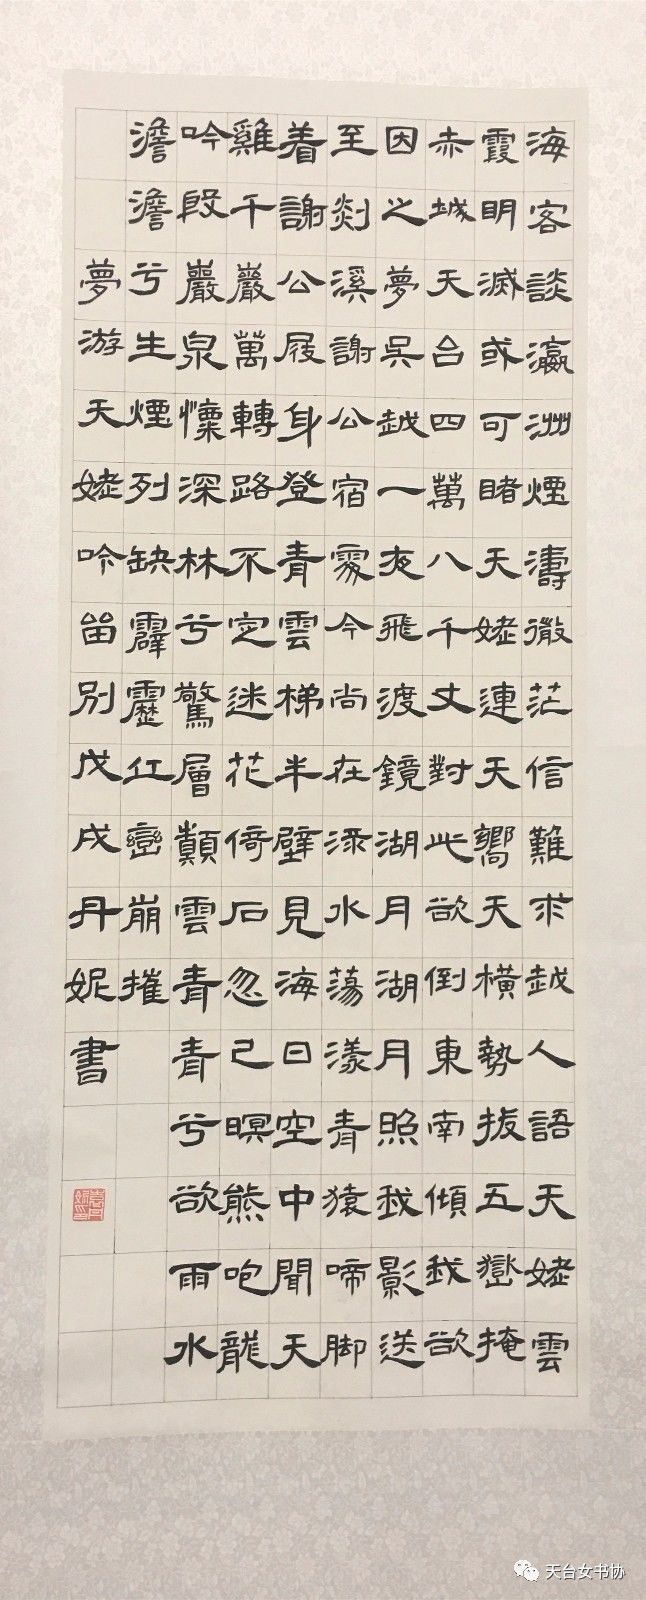 海客談瀛洲煙濤微茫信難求越人語天姥雲
霞明滅或可睹天姥連天嚮天橫勢拔五嶽掩
赤城天台四萬八千丈對此欲倒東南傾我欲
因之夢吳越一夜飛渡鏡湖月湖月照我影送
至剡溪謝公宿處今尚在淥水蕩漾青猿啼脚
着謝公屐身登青雲梯半壁見海日空中聞天
雞千巖萬轉路不定迷花倚石忽已暝熊咆龍
吟殷巖泉慄深林兮驚層顛雲青青兮欲雨水
澹澹兮生煙列缺霹靂丘巒崩摧
夢游天姥吟留別戊戌丹妮書
天台女书协